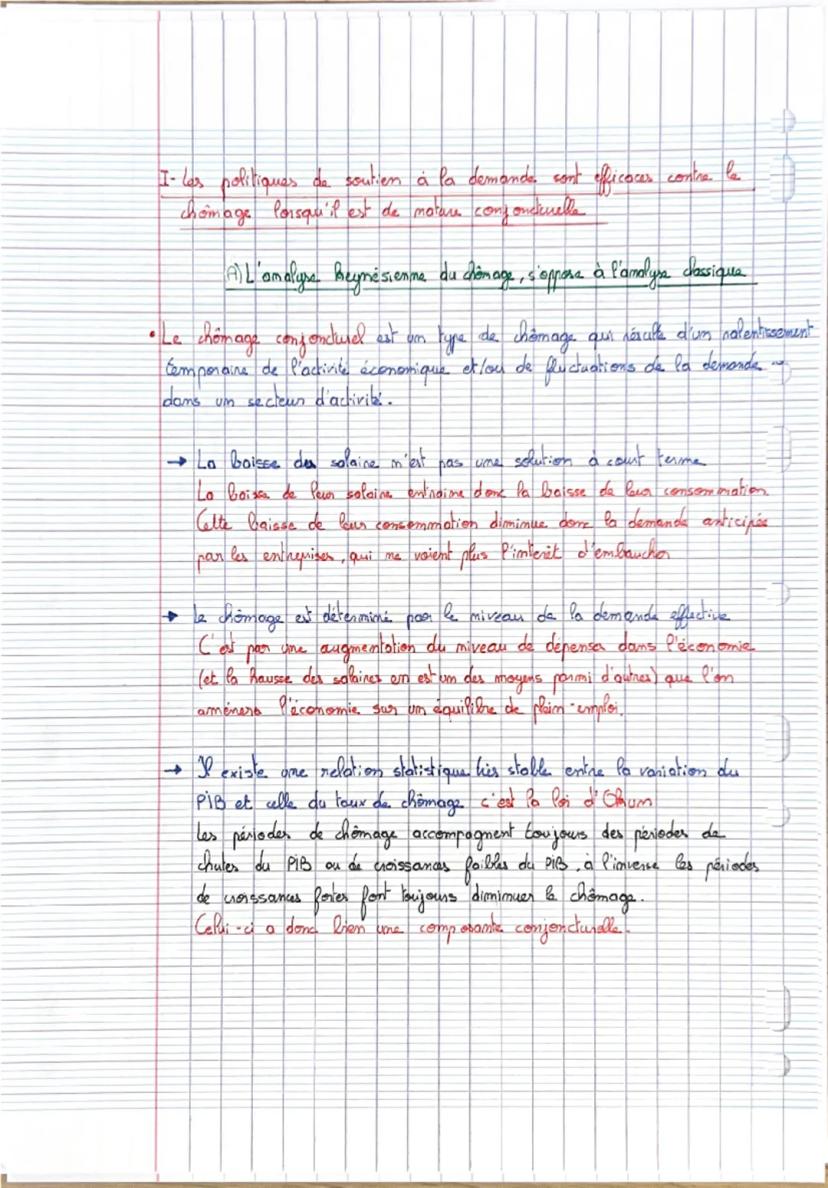 I- Les politiques de soutien à la demande sont efficaces contre le
chômage lorsqu'il est de nature conjoncturelle
A) L'analyse keynésienne du chômage, s'oppose à l'analyse classique
• Le chômage conjoncturel est un type de chômage qui résulte d'un ralentissement
temporaire de l'activité économique et/ou de fluctuations de la demande
dans un secteur d'activité.
→ La baisse des salaire n'est pas une solution à court terme
La baisse de leur salaire entraine donc la baisse de leur consommation
Cette baisse de leur consommation diminue donc la demande anticipée
par les entreprises, qui ne voient plus l'interêt d'embaucher
→ Le chômage est déterminé par le niveau de la demande effective
C'est par une augmentation du niveau de dépenses dans l'économie
(et la hausse des salaires en est un des moyens parmi d'autres) que l'on
amènera l'économie sur un équilibre de plein-emploi.
→ Il existe une relation statistique très stable entre la variation du
PIB et celle du taux de chômage c'est la loi d'Okun
Les périodes de chômage accompagnent toujours des périodes de
chutes du PIB ou de croissances faibles du PIB, à l'inverse les périodes
de croissances fortes font toujours diminuer le chômage.
Celui-ci a donc bien une composante conjoncturelle.